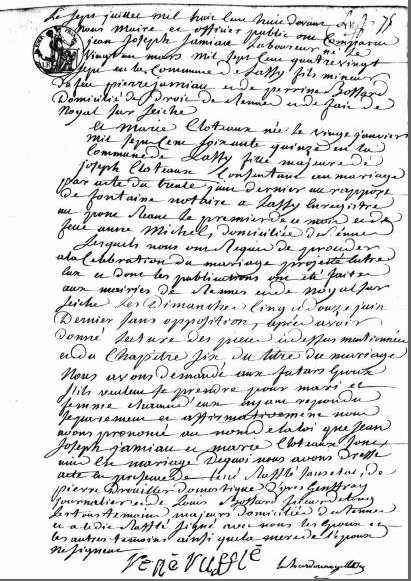 Le sept juillet mil huit cent huit devant 75
Nous Maire et officier public ont Comparu
jean joseph jamiau Laboureur né le
vingt un mars mil sept cent quatre vingt
sept en la Commune de Lassy fils mineur
de feu pierre jamiau et de perrine jossard
Domicilié de droit de Rennes et de fait de
Noyal sur Seiche
et Marie Cloteaux née le vingt janvier
mil sept cent soixante quinze en la
commune de Lassy fille majeure de
joseph Cloteaux Consentant au mariage
par acte du trente juin dernier au rapport
de fontaine notaire à Lassy Enregistré
au le premier de ce mois et de
feue anne Michel, domiciliée de Rennes
Lesquels nous ont Requis de proceder
a la Celebration du mariage projetté Entre
Eux et dont les publications ont été faites
aux mairies de Rennes et de Noyal sur
Seiche Les Dimanches Cinq et douze juin
Dernier sans opposition, après avoir
donné Lecture des pieces cidessus mentionnées
et du Chapitre six du titre du mariage
Nous avons demandé aux futurs Epoux
s'ils veulent se prendre pour mari et
femme chacun d'eux ayant repondu
separement et affirmativement nous
avons prononcé au nom de la loi que jean
Joseph jamiau et marie Cloteaux sont
unis En mariage De quoi nous avons Dressé
acte En presence de rené Rafflé de
pierre Drouiller domestique D'yves Geoffroy
journalier et de Louis jossard
Les tous temoins majeurs domiciliés de Rennes
et a ledit Rafflé signé avec nous les Epoux et
les autres temoins ainsi que la mere de l'Epoux
ne signent
René Rufflé